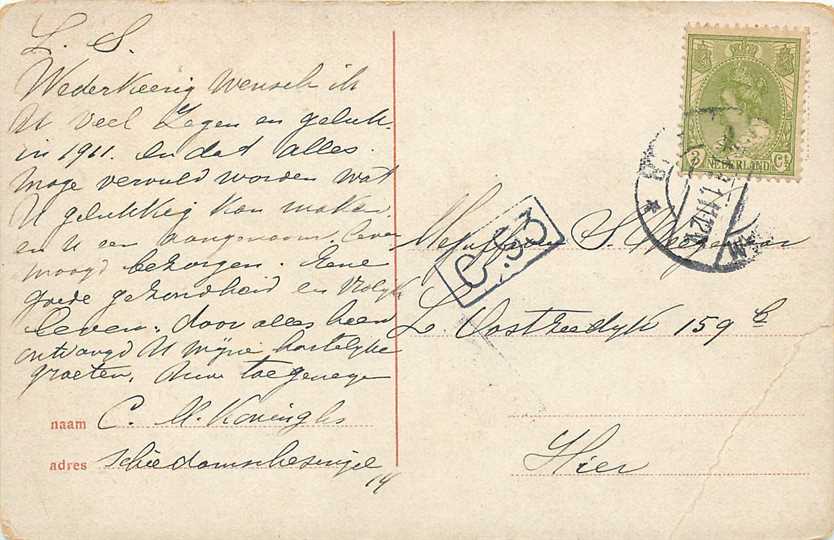 L. S.
Wederkeerig wensch ik
U veel Zegen en geluk.
in 1911. en dat alles.
moge vervuld worden wat
U gelukkig kan maken.
en U een aangenaam leven
moogd bezorgen. Eene
goede gezondheid en Vrolijk
leven. door alles heen
ontvangd U mijne hartelijke
groeten, Uwe toegenegen
naam C. M. Koninghs
adres Schiedamschesingel
14
3 Ct
NEDERLAND
C 33
Mejuffrouw S.
L. Oostzeedijk 159 b
Hier